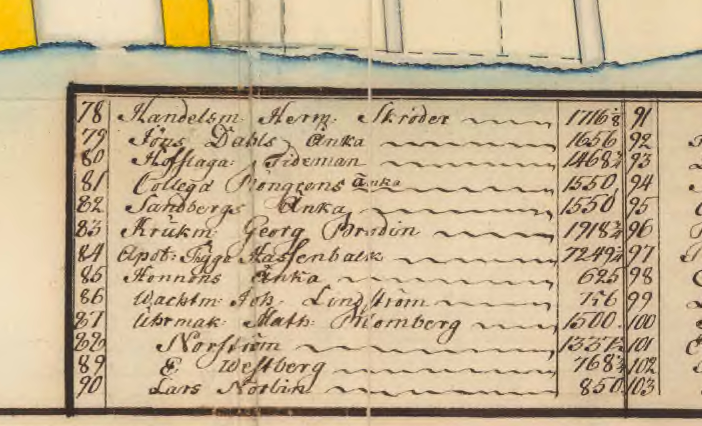 78 Handelsm: Herm: Skröder 1716 91
79 Jöns Dahls Änka 1656 92
80 Hofflaga: Tideman 1468 93
81 Collega Änka 1550 94
82 Sandbergs Änka 1550 95
83 Krukm: Georg Brodin 1918 96
84 Apot: Hassenbalk 7249 97
85 Honnons Änka 625 98
86 Wachtm: Joh: Lindström 756 99
87 Uhrmak: Math: Blomberg 1500 100
88 Norström 1337 101
89 E. Westberg 768 102
90 Lars Norlin 850 103